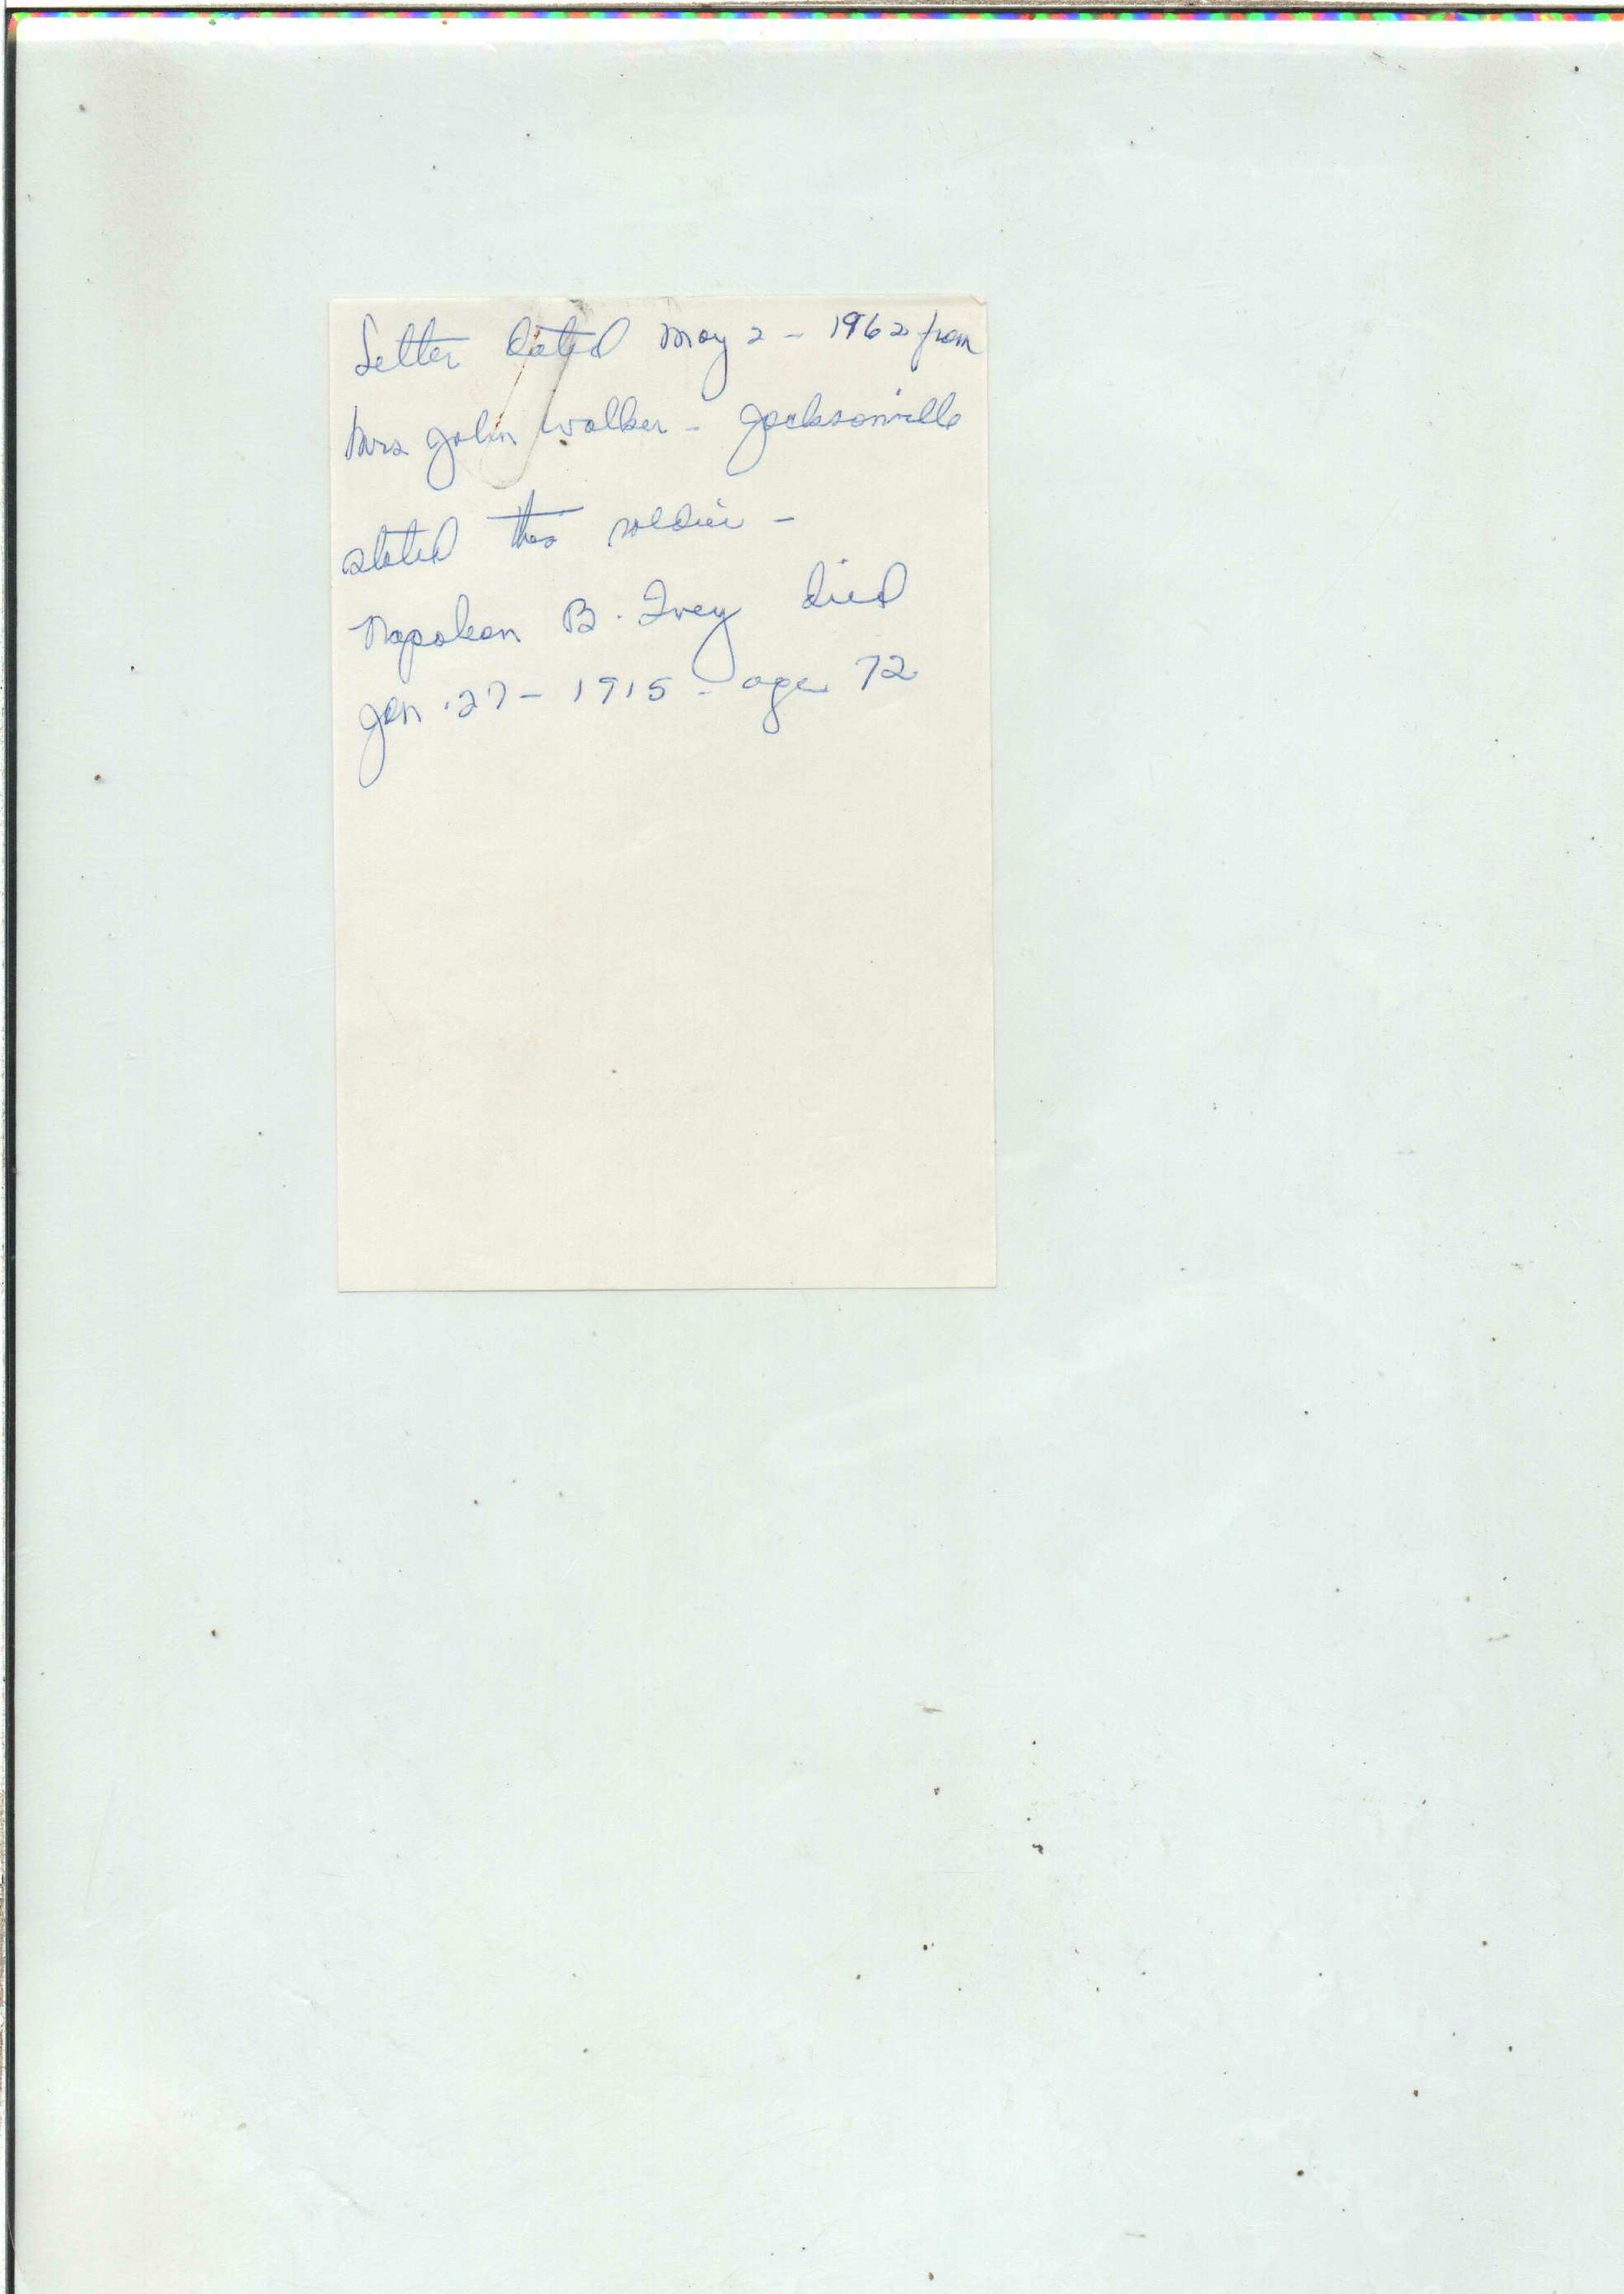 Letter dated May 2 - 1962 from
Mrs John Walker - Jacksonville
stated this soldier -
Napoleon B. Ivey died
Jan. 27 - 1915 - age 72